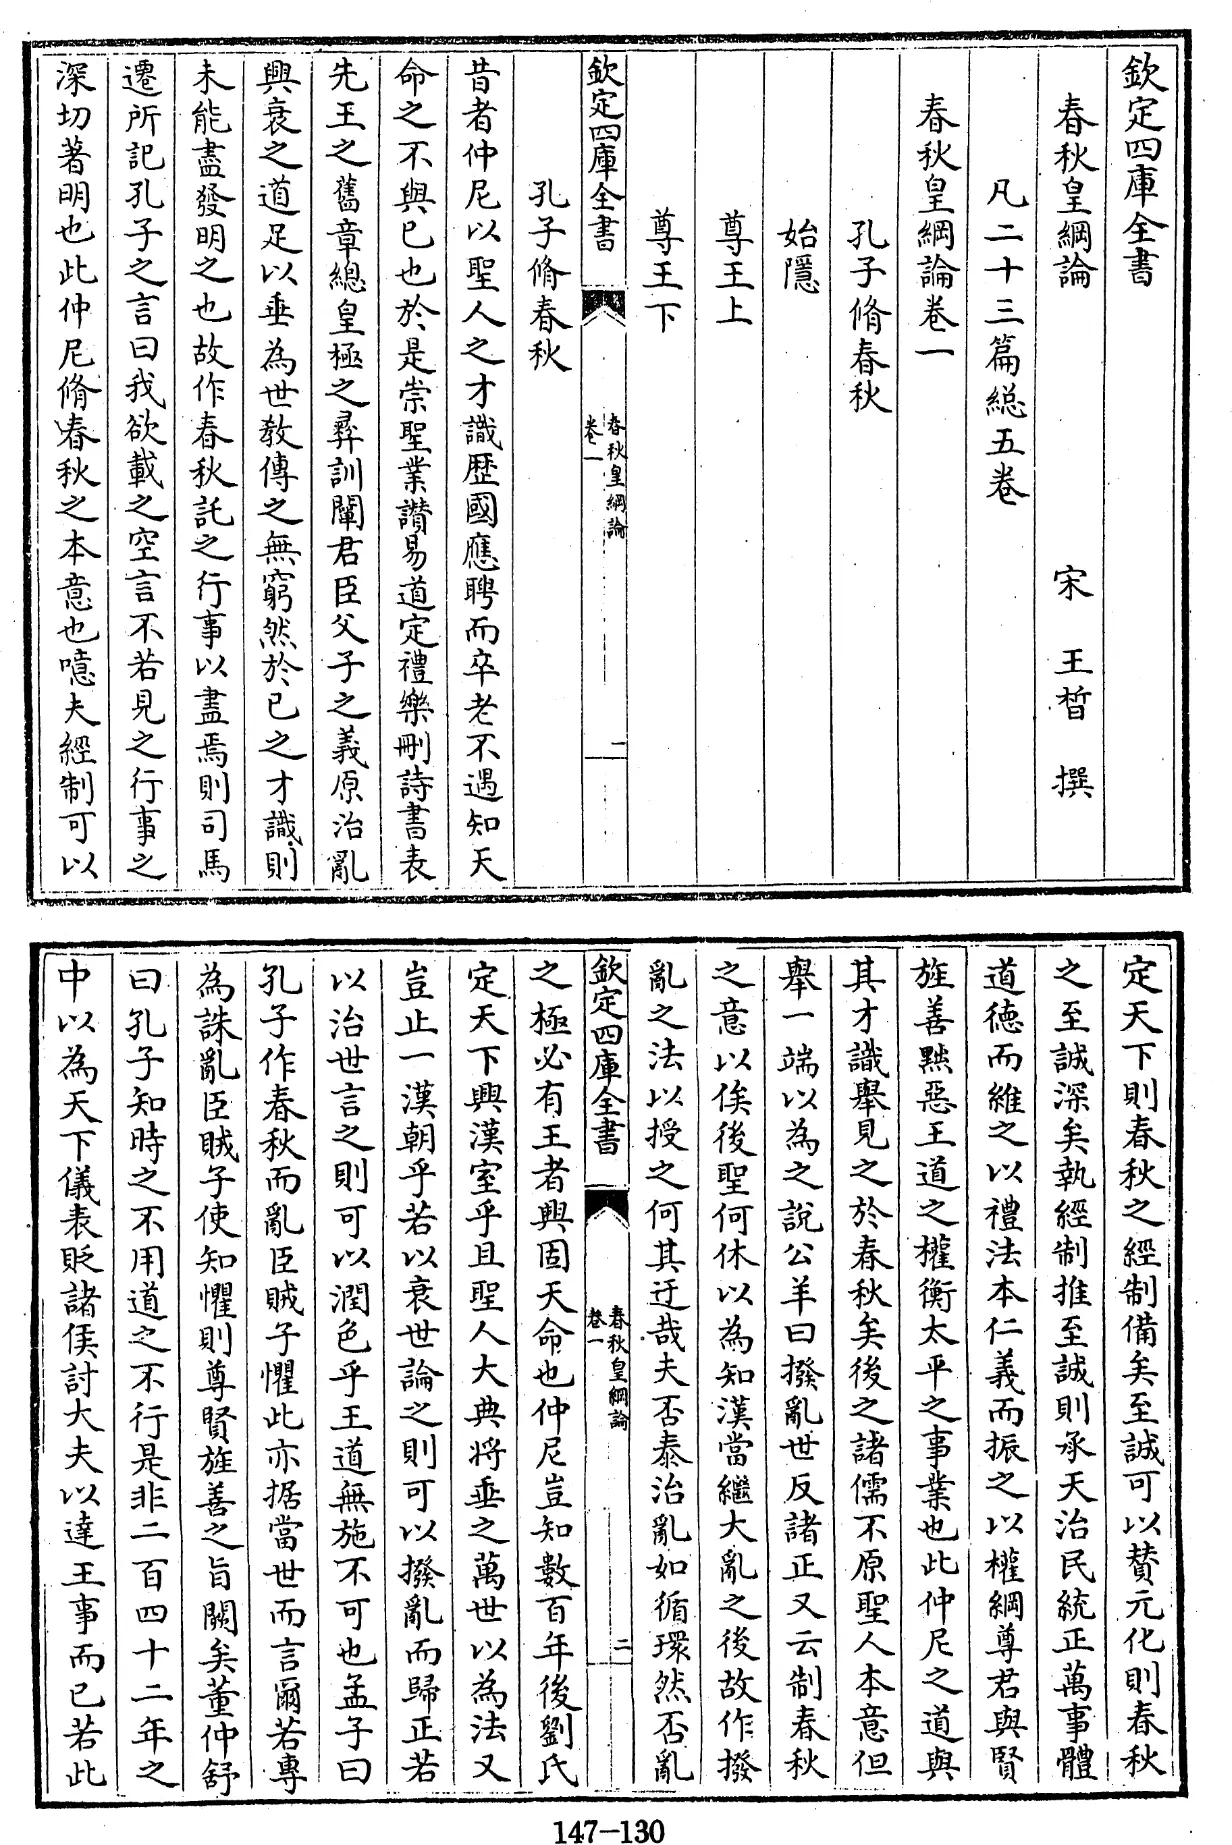 欽定四庫全書
春秋皇綱論　宋　王晳　撰
凡二十三篇總五卷
春秋皇綱論卷一
孔子脩春秋
始隱
尊王上
尊王下
欽定四庫全書
春秋皇綱論
卷一
一
孔子脩春秋
昔者仲尼以聖人之才識歴國應聘而卒老不遇知天
命之不與已也於是崇聖業讃易道定禮樂刪詩書表
先王之舊章總皇極之彛訓闡君臣父子之義原治亂
興衰之道足以垂為世敎傳之無窮然於已之才識則
未能盡發明之也故作春秋託之行事以盡焉則司馬
遷所記孔子之言曰我欲載之空言不若見之行事之
深切著明也此仲尼脩春秋之本意也噫夫經制可以
定天下則春秋之經制備矣至誠可以贊元化則春秋
之至誠深矣執經制推至誠則承天治民統正萬事體
道德而維之以禮法本仁義而振之以權綱尊君與賢
旌善黜惡王道之權衡太平之事業也此仲尼之道與
其才識舉見之於春秋矣後之諸儒不原聖人本意但
舉一端以為之說公羊曰撥亂世反諸正又云制春秋
之意以俟後聖何休以為知漢當繼大亂之後故作撥
亂之法以授之何其迂哉夫否泰治亂如循環然否亂
欽定四庫全書
春秋皇綱論
卷一
二
之極必有王者興固天命也仲尼豈知數百年後劉氏
定天下興漢室乎且聖人大典將垂之萬世以為法又
豈止一漢朝乎若以衰世論之則可以撥亂而歸正若
以治世言之則可以潤色乎王道無施不可也孟子曰
孔子作春秋而亂臣賊子懼此亦据當世而言爾若專
為誅亂臣賊子使知懼則尊賢旌善之旨闕矣董仲舒
曰孔子知時之不用道之不行是非二百四十二年之
中以為天下儀表貶諸侯討大夫以達王事而已若此
147-130